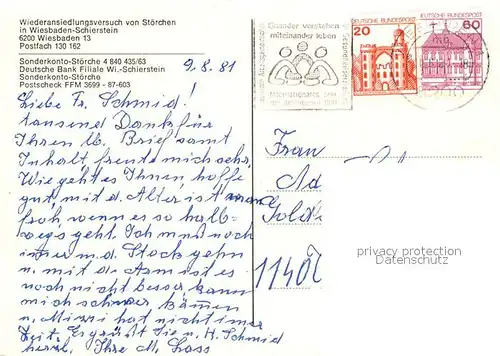 Wiederansiedlungsversuch von Störchen
in Wiesbaden-Schierstein
6200 Wiesbaden 13
Postfach 130 162
Sonderkonto-Störche 4 840 435/63
Deutsche Bank Filiale Wi.-Schierstein
Sonderkonto-Störche
Postscheck FFM 3699 - 87-603
9.8.81
Liebe Fr. Schmid!
tausend Dank für
Ihren lb. Brief samt
Inhalt, freute mich sehr.
Wie geht es Ihnen, hoffe
gut, mit d. Alter ist man
froh wenn es so halb=
wegs geht. Ich muß noch
immer m. d. Stock gehn
u. mit d. Arm ist es
noch nicht besser, kann
mich schwer kämmen
u. Mizzi hat nicht immer
Zeit. Es grüßt Sie u. H. Schmid
herzl. Ihre M. Lass
Einander verstehen
miteinander leben
Internationales Jahr
der Behinderten 1981
20
DEUTSCHE BUNDESPOST
60
Frau
Goldk
1140
privacy protection
Datenschutz